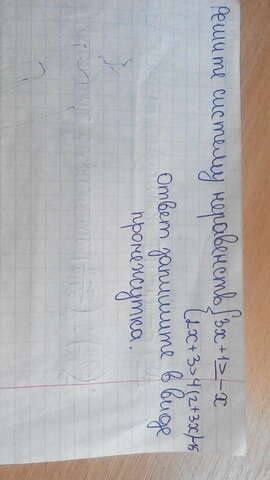 Решите систему неравенств {3x + 1 ≥ -x
{2x + 3 > 4(2+3x)-5
Ответ запишите в виде
промежутка.